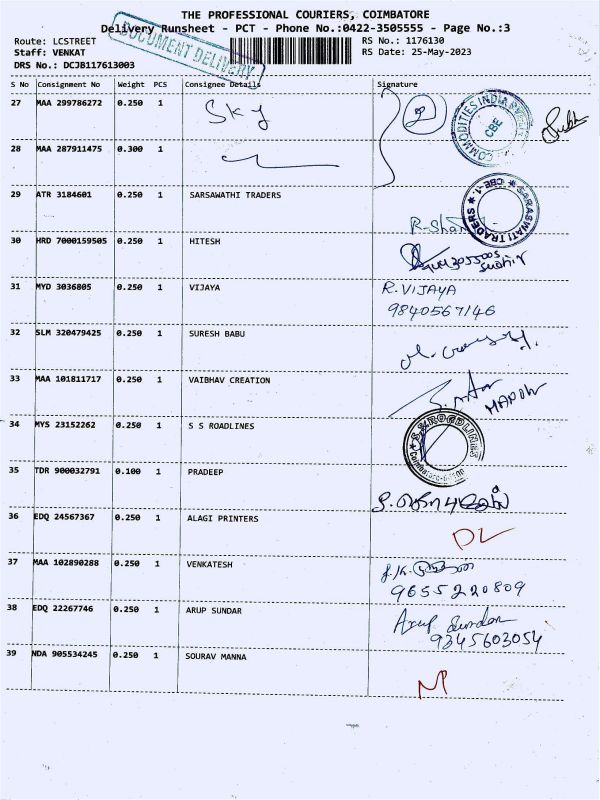 THE PROFESSIONAL COURIERS, COIMBATORE
Delivery Runsheet - PCT - Phone No.:0422-3505555 - Page No.:3
Route: LCSTREET RS No.: 1176130
Staff: VENKAT RS Date: 25-May-2023
DRS No.: DCJB117613003
DOCUMENT DELIVERY
S No Consignment No Weight PCS Consignee Details Signature
27 MAA 299786272 0.250 1 Sky
COMMODITIES INDIA CBE
28 MAA 287911475 0.300 1
29 ATR 3184601 0.250 1 SARSAWATHI TRADERS
★ SARASWATI TRADERS ★ CBE-1.
30 HRD 7000159505 0.250 1 HITESH
31 MYD 3036805 0.250 1 VIJAYA R. VIJAYA
9840567146
32 SLM 320479425 0.250 1 SURESH BABU
33 MAA 101811717 0.250 1 VAIBHAV CREATION
34 MYS 23152262 0.250 1 S S ROADLINES
S.S.ROADLINES
35 TDR 900032791 0.100 1 PRADEEP
36 EDQ 24567367 0.250 1 ALAGI PRINTERS DL
37 MAA 102890288 0.250 1 VENKATESH
9655220809
38 EDQ 22267746 0.250 1 ARUP SUNDAR Arup Sundar
9345603054
39 NDA 905534245 0.250 1 SOURAV MANNA